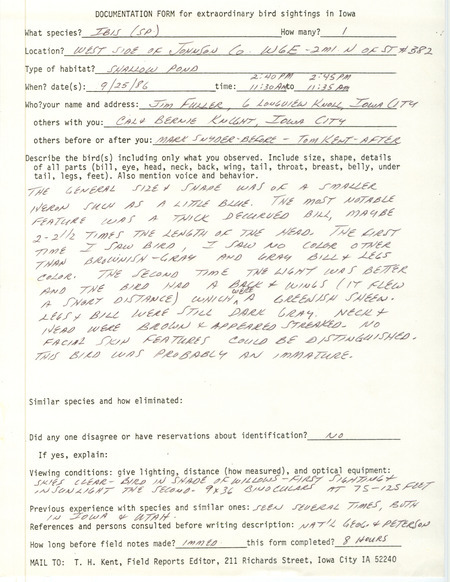 DOCUMENTATION FORM for extraordinary bird sightings in Iowa
What species? IBIS (SP.) How many? 1
Location? WEST SIDE OF JOHNSON CO. W6E - 2 MI N OF ST # 382
Type of habitat? SHALLOW POND
2:40 PM 2:45 PM
When? date(s): 9/25/86 time: 11:30 AM to 11:35 AM
Who?your name and address: JIM FULLER, 6 LONGVIEW KNOLL, IOWA CITY
others with you: CAL & BERNIE KNIGHT, IOWA CITY
others before or after you: MARK SNYDER-BEFORE - TOM KENT-AFTER
Describe the bird(s) including only what you observed. Include size, shape, details
of all parts (bill, eye, head, neck, back, wing, tail, throat, breast, belly, under
tail, legs, feet). Also mention voice and behavior.
THE GENERAL SIZE & SHAPE WAS OF A SMALLER
HERON SUCH AS A LITTLE BLUE. THE MOST NOTABLE
FEATURE WAS A THICK DECURVED BILL, MAYBE
2-2 1/2 TIMES THE LENGTH OF THE HEAD. THE FIRST
TIME I SAW BIRD, I SAW NO COLOR OTHER
THAN BROWNISH-GRAY AND GRAY BILL & LEGS
COLOR. THE SECOND TIME THE LIGHT WAS BETTER
AND THE BIRD HAD A BACK & WINGS (IT FLEW
A SHORT DISTANCE) WHICH WERE A GREENISH SHEEN.
LEGS & BILL WERE STILL DARK GRAY. NECK &
HEAD WERE BROWN & APPEARED STREAKED. NO
FACIAL SKIN FEATURES COULD BE DISTINGUISHED.
THIS BIRD WAS PROBABLY AN IMMATURE.
Similar species and how eliminated:
Did any one disagree or have reservations about identification? NO
If yes, explain:
Viewing conditions: give lighting, distance (how measured), and optical equipment:
SKIES CLEAR - BIRD IN SHADE OF WILLOWS - FIRST SIGHTING &
IN SUNLIGHT THE SECOND. 9X36 BINOCULARS AT 75-125 FEET
Previous experience with species and similar ones: SEEN SEVERAL TIMES, BOTH
IN IOWA & UTAH.
References and persons consulted before writing description: NAT'L GEOG & PETERSON
How long before field notes made? IMMED this form completed? 8 HOURS
MAIL TO: T. H. Kent, Field Reports Editor, 211 Richards Street, Iowa City IA 52240